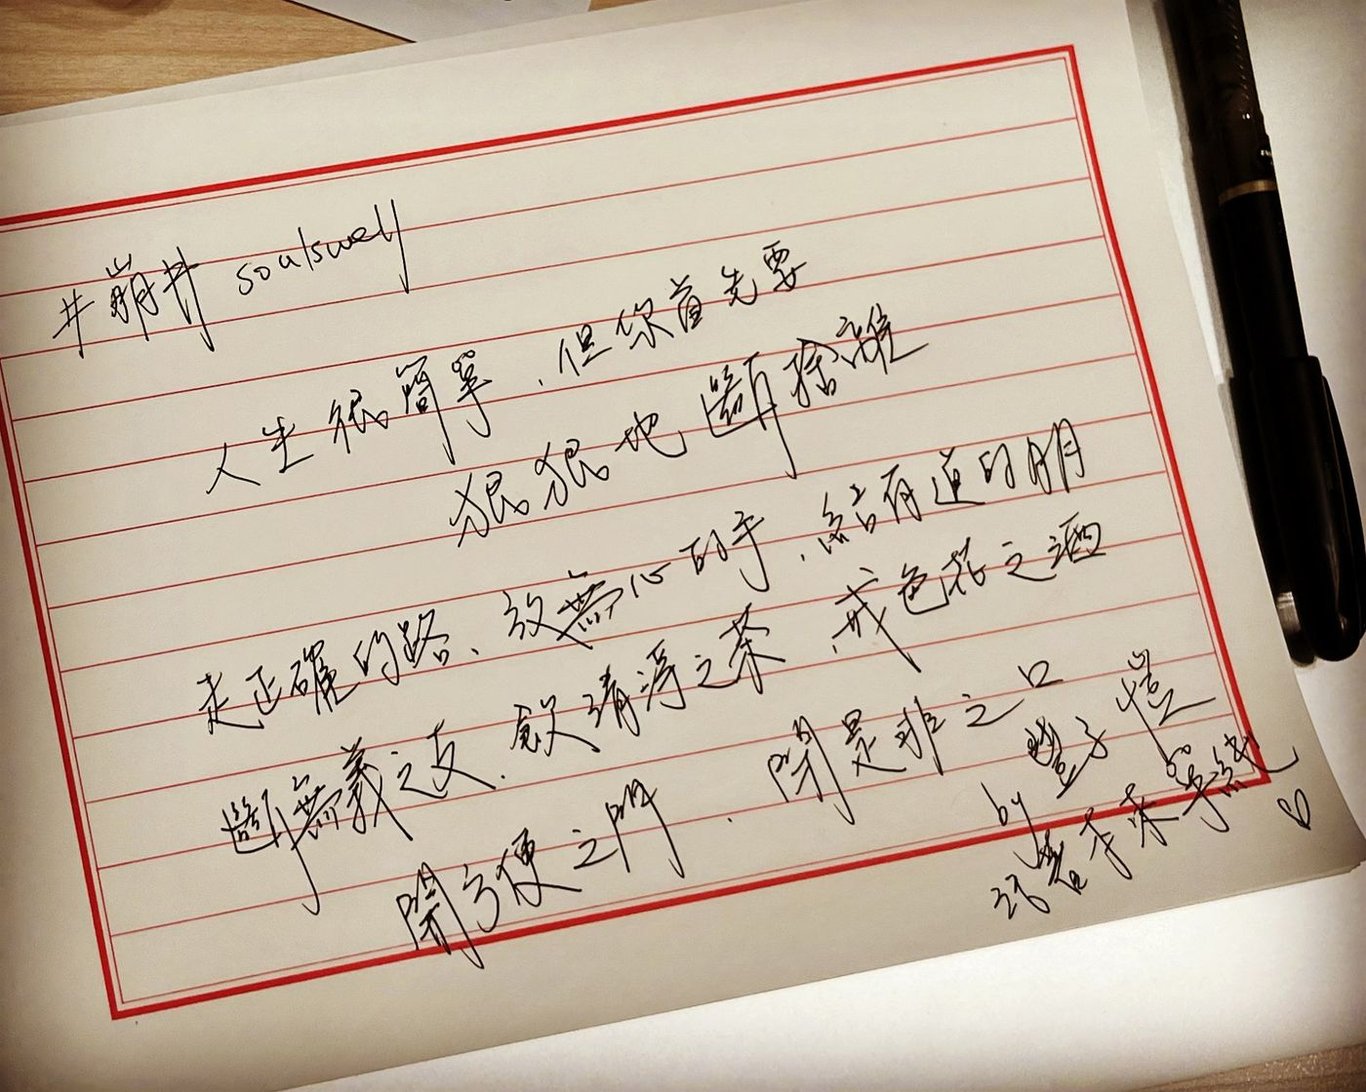 #崩井 soulswell
人生很簡單，但你首先要
狠狠地斷捨離
走正確的路、放無心的手、結有道的朋
斷無義之友、飲清淨之茶、戒色花之酒
開方便之門、閉是非之口
by 豐子愷